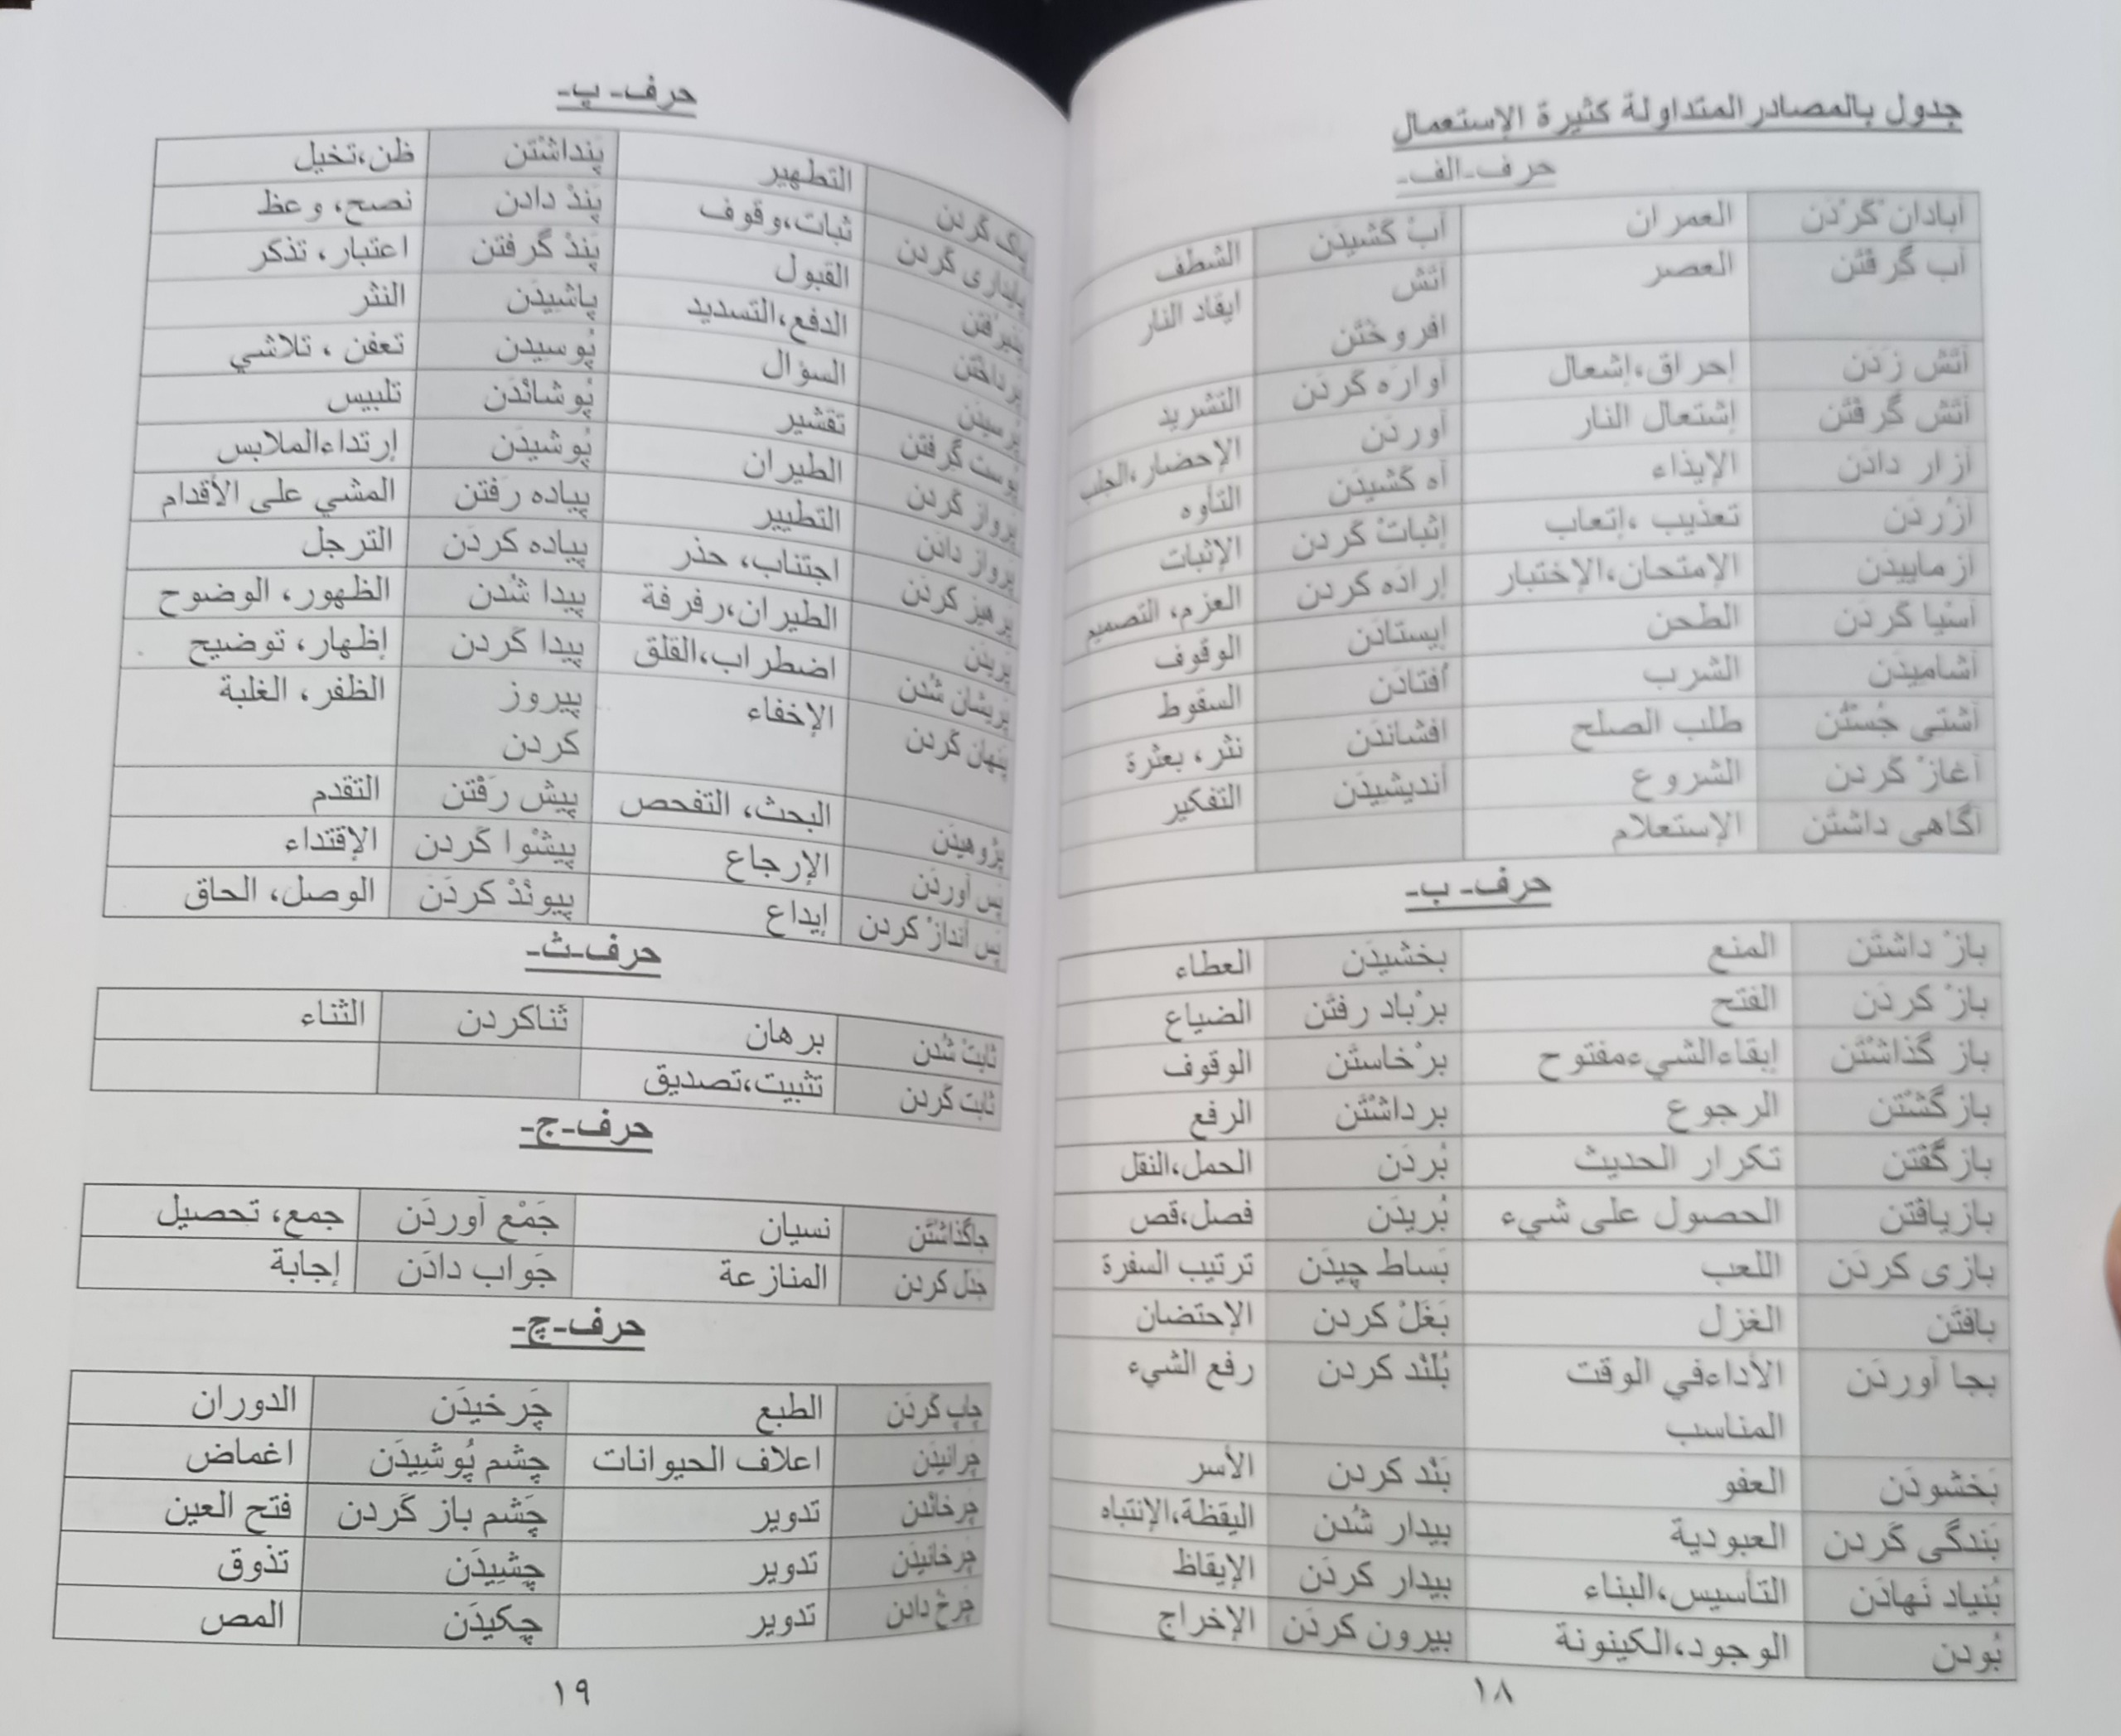 جدول بالمصادر المتداولة كثيرة الإستعمال
حرف-الف-
آبادانْ كَرْدَن العمران آبْ كَشيدَن الشطف
آب گِرِفْتَن العصر آتَش افروخْتَن ايقاد النار
آتَش زَدَن إحراق،إشعال آوارَه كَردَن التشريد
آتَش گِرِفْتَن إشتعال النار آوردَن الإحضار،الجلب
آزار دادَن الإيذاء آه كَشيدَن التأوه
آزُردَن تعذيب ،إتعاب إثباتْ كَردن الإثبات
آزماييدَن الإمتحان،الإختبار إرادَه كردن العزم، التصميم
آسْيا كَردَن الطحن إيستادَن الوقوف
آشاميدَن الشرب أُفتادَن السقوط
آشتى جُسْتَن طلب الصلح افشاندَن نثر، بعثرة
آغازْ كَردن الشروع أنديشيدَن التفكير
آگاهى داشتَن الإستعلام
حرف- ب-
بازْ داشتَن المنع بخشيدَن العطاء
بازْ كردَن الفتح برْباد رفتَن الضياع
باز گذاشْتَن إبقاءالشيءمفتوح برْخاستَن الوقوف
بازگشْتَن الرجوع برداشْتَن الرفع
بازگفتن تكرار الحديث بُردَن الحمل،النقل
بازيافْتَن الحصول على شيء بُريدَن فصل،قص
بازى كردَن اللعب بَساط چيدَن ترتيب السفرة
بافْتَن الغزل بَغَلْ كردن الإحتضان
بجا آوردَن الأداءفي الوقت المناسب بُلَنْد كردن رفع الشيء
بَخشودَن العفو بَنْد كردن الأسر
بَندگى كَردن العبودية بيدار شُدن اليقظة،الإنتباه
بُنياد نَهادَن التأسيس،البناء بيدار كردَن الإيقاظ
بُودن الوجود،الكينونة بيرون كردَن الإخراج
١٨
حرف- پ-
پاک كَردن التطهير پَنداشْتن ظن،تخيل
پايدارى كَردن ثبات،وقوف پَندْ دادن نصح، وعظ
القبول پَندْ گرفتن اعتبار، تذكر
پَرداخْتَن الدفع،التسديد پاشيدَن النثر
پُرسيدَن السؤال پُوسيدن تعفن ، تلاشي
پوست گرفتن تقشير پُوشانْدَن تلبيس
پرواز كردن الطيران پُوشيدَن إرتداءالملابس
پرواز دادن التطيير پياده رَفتن المشي على الأقدام
پرهيز كردن اجتناب، حذر پياده كردَن الترجل
پَريدَن الطيران،رفرفة پيدا شُدن الظهور، الوضوح
پَريشان شُدن اضطراب،القلق پيدا كَردن إظهار، توضيح
پنهان كَردن الإخفاء پيروز كردن الظفر، الغلبة
پژوهيدَن البحث، التفحص پيش رَفْتن التقدم
پَس آوردَن الإرجاع پيشْوا كَردن الإقتداء
پَس أندازْ كردن إيداع پيونْدْ كردَن الوصل، الحاق
حرف-ث-
ثابتْ شُدن برهان ثناكردن الثناء
ثابت كَردن تثبيت،تصديق
حرف-ج-
جاگذاشتَن نسيان جَمْع آوردَن جمع، تحصيل
جَدَل كردن المنازعة جَواب دادَن إجابة
حرف-چ-
چاپ كَردَن الطبع چَرخيدَن الدوران
چَرانيدَن اعلاف الحيوانات چشم پُوشِيدَن اغماض
چَرخانْدن تدوير چَشم باز كَردن فتح العين
چَرخانيدَن تدوير چشِيدَن تذوق
چَرخْ دادن تدوير چكيدَن المص
١٩